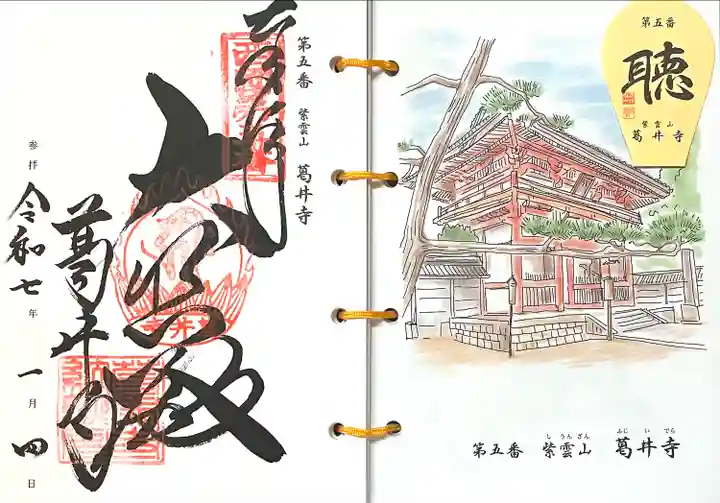 奉拝
第五番 紫雲山 葛井寺
大悲殿
葛井寺
参拝 令和七年 一月 四日
第五番
聴
紫雲山
葛井寺
第五番 紫雲山 葛井寺
し うん ざん ふじ い でら